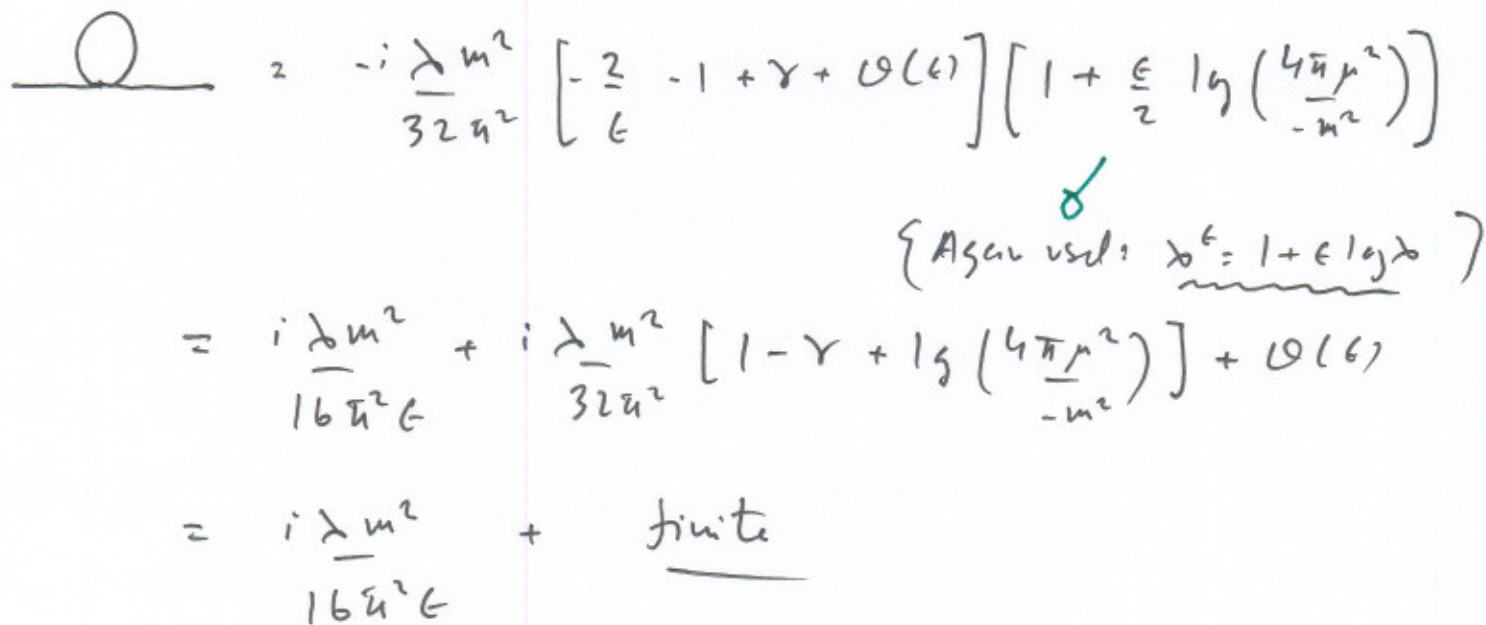 = -i λm²/32π² [-2/ϵ - 1 + γ + O(ϵ)] [1 + ϵ/2 lg(4πμ²/-m²)]
{Again used: λ^ϵ = 1 + ϵ lg λ}
= iλm²/16π²ϵ + iλm²/32π² [1 - γ + lg(4πμ²/-m²)] + O(ϵ)
= iλm²/16π²ϵ + finite